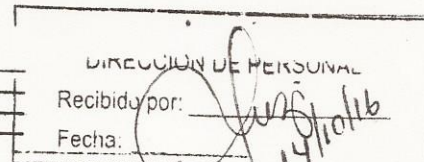 DIRECCIÓN DE PERSONAL
Recibido por:
Fecha: 14/10/16